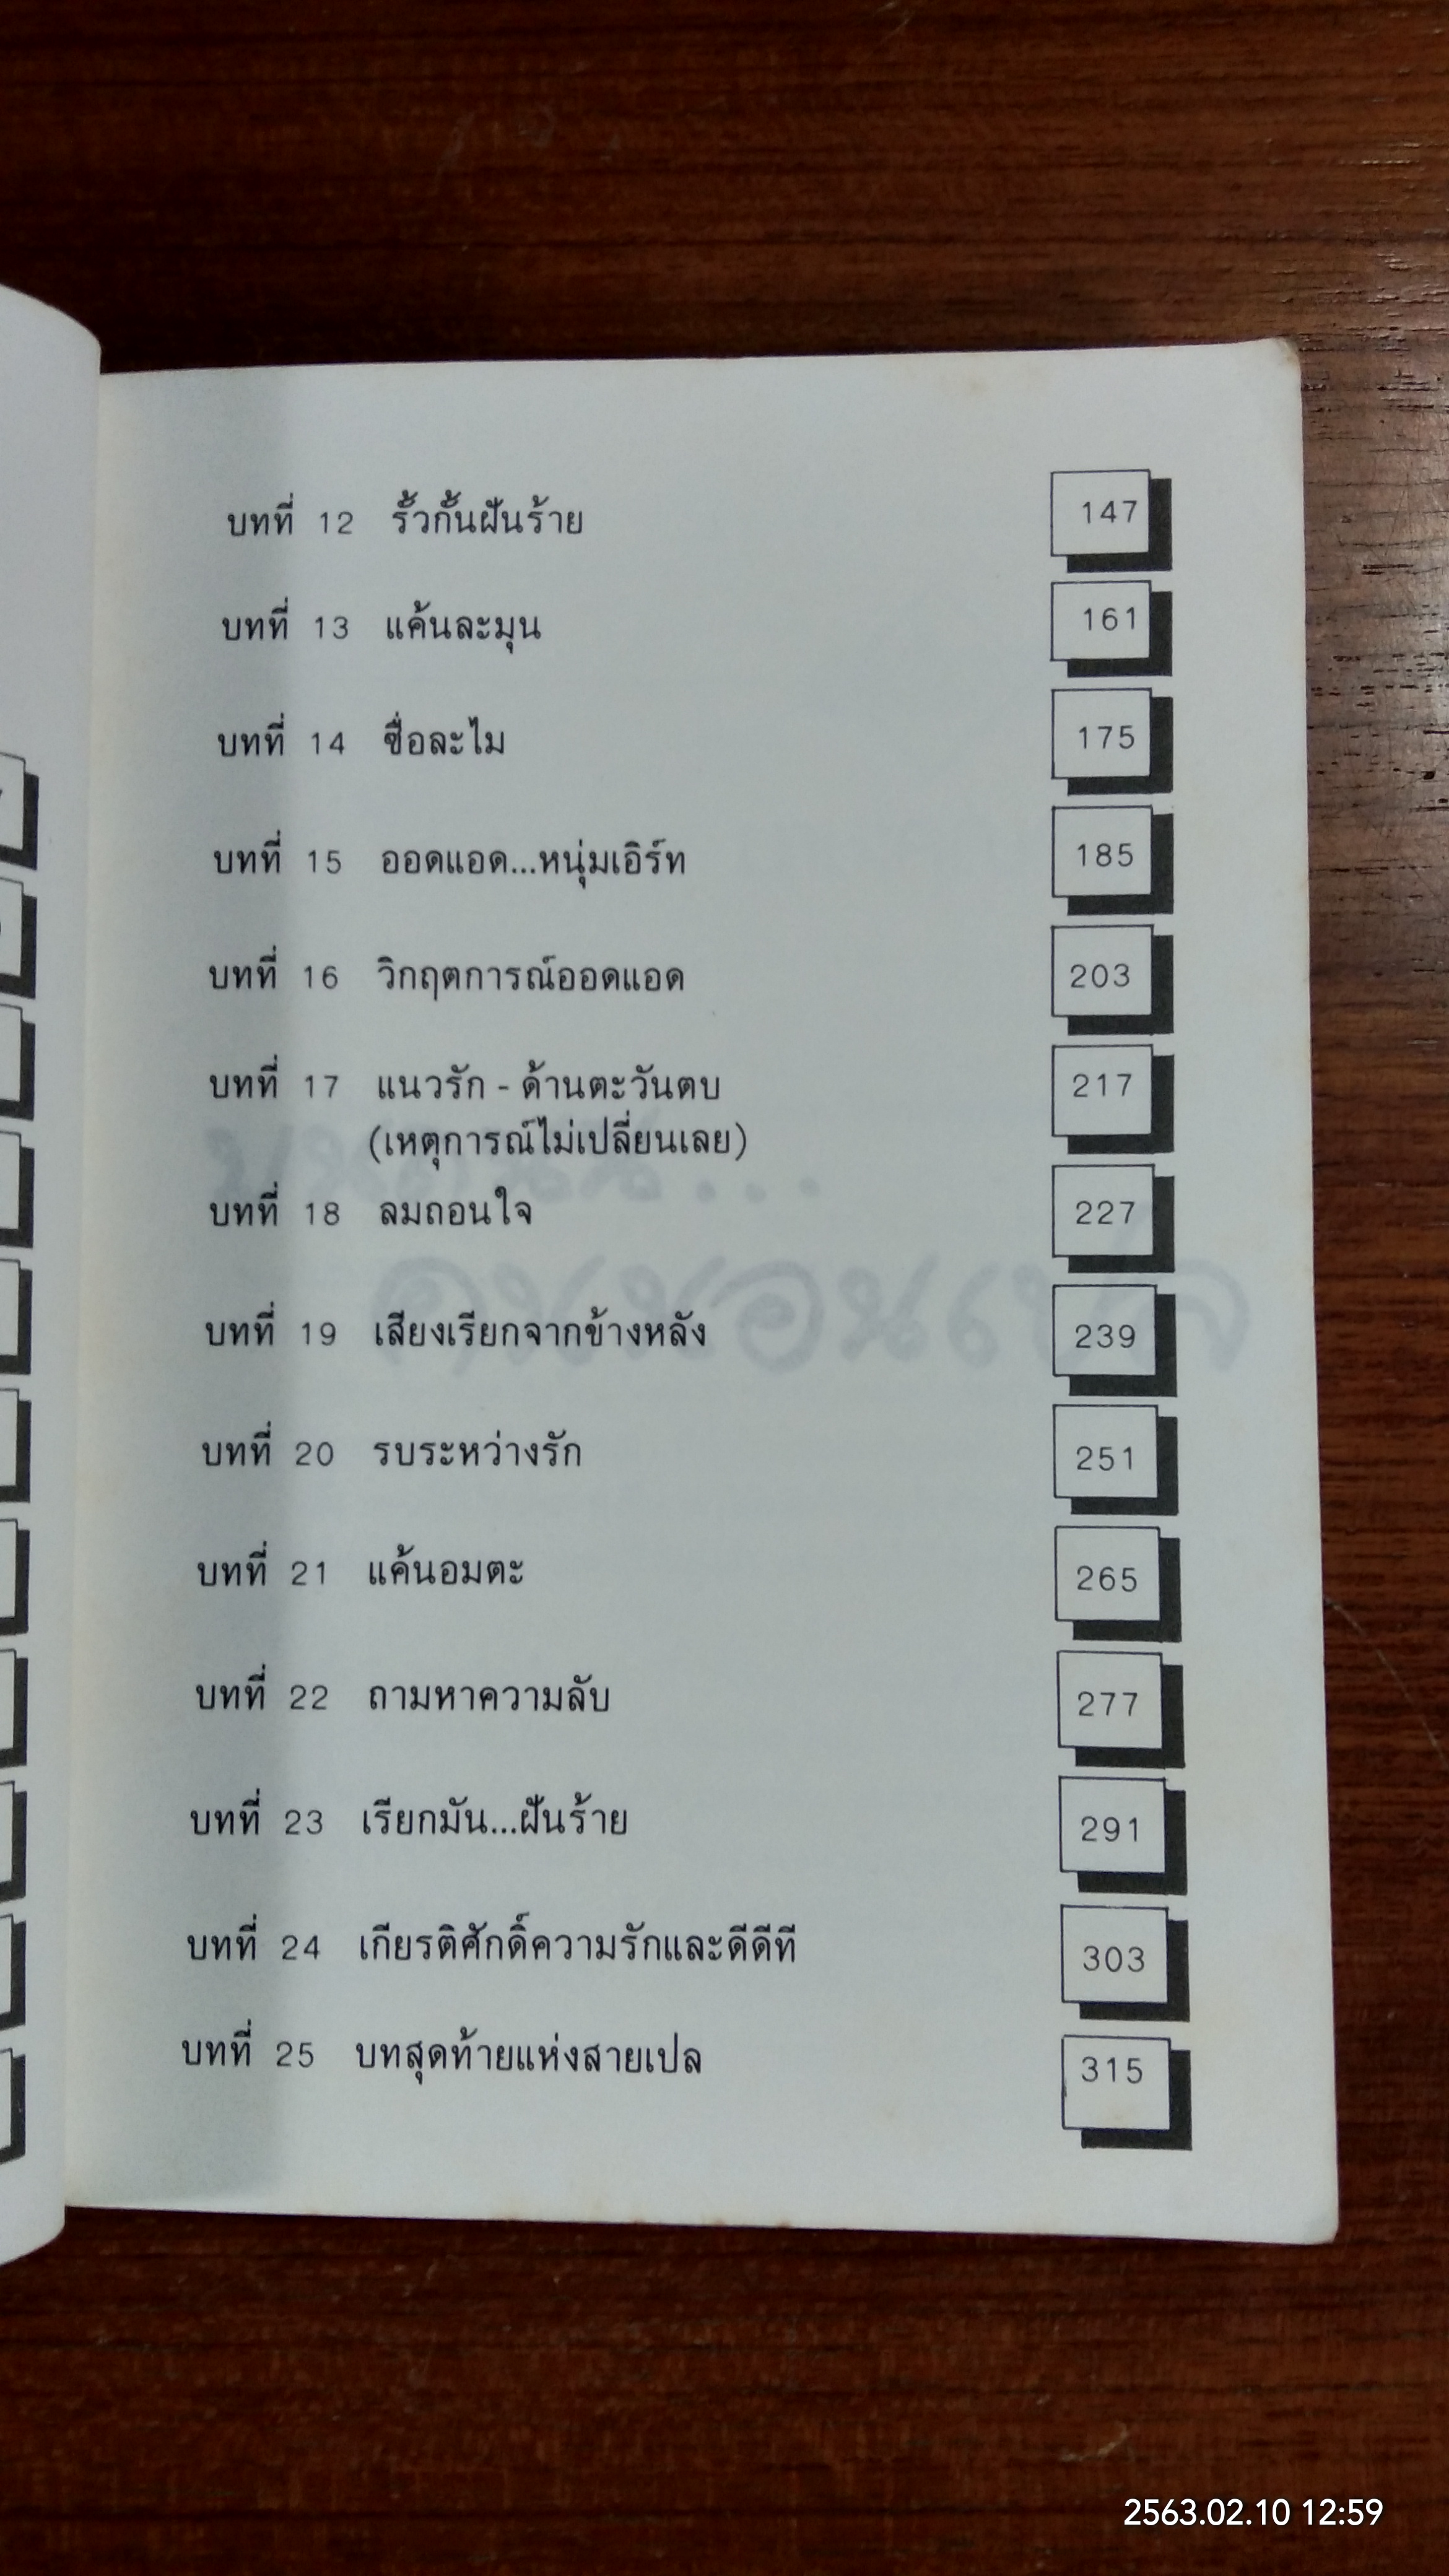 บทที่ 12 รั้วกั้นฝันร้าย 147
บทที่ 13 แค้นละมุน 161
บทที่ 14 ชื่อละไม 175
บทที่ 15 ออดแอด...หนุ่มเอิร์ท 185
บทที่ 16 วิกฤตการณ์ออดแอด 203
บทที่ 17 แนวรัก - ด้านตะวันตบ 217
(เหตุการณ์ไม่เปลี่ยนเลย)
บทที่ 18 ลมถอนใจ 227
บทที่ 19 เสียงเรียกจากข้างหลัง 239
บทที่ 20 รบระหว่างรัก 251
บทที่ 21 แค้นอมตะ 265
บทที่ 22 ถามหาความลับ 277
บทที่ 23 เรียกมัน...ฝันร้าย 291
บทที่ 24 เกียรติศักดิ์ความรักและดีดีที 303
บทที่ 25 บทสุดท้ายแห่งสายเปล 315
2563.02.10 12:59